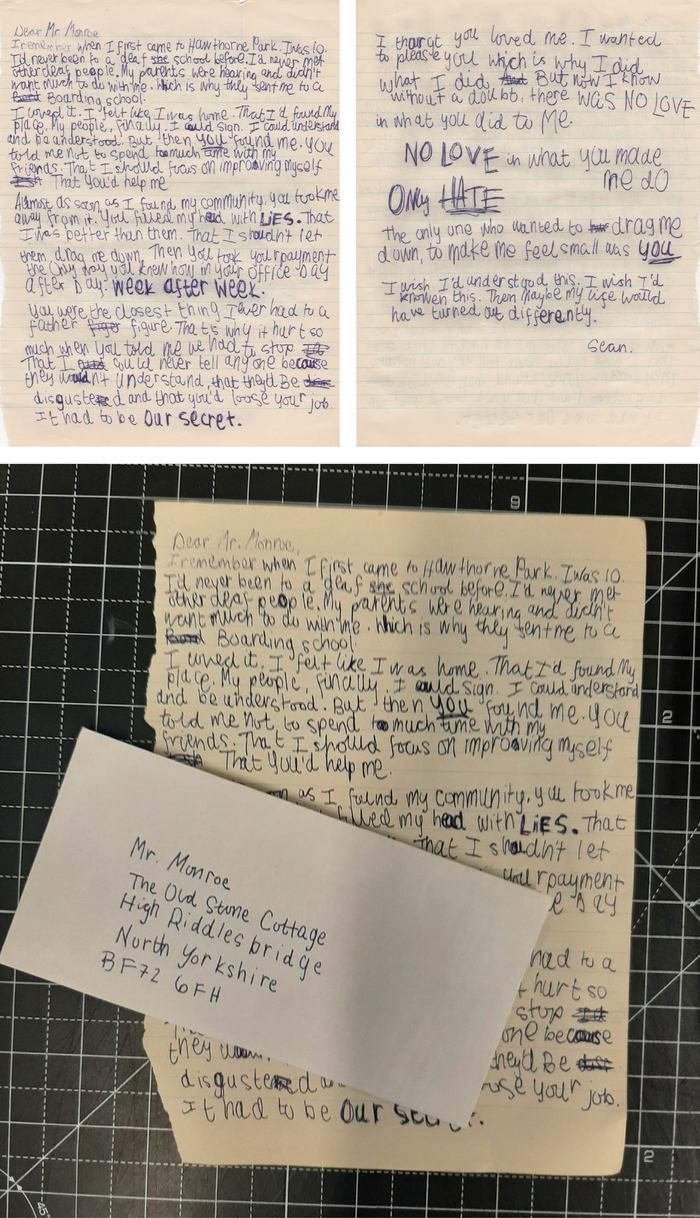 Dear Mr Monroe
I remember when I first came to Hawthorne Park. I was 10.
I'd never been to a deaf school before. I'd never met
other deaf people. My parents were hearing and didn't
want much to do with me. Which is why they sent me to a
Boarding school.
I loved it. I felt like I was home. That I'd found My
place. My people, finally. I could sign. I could understand
and be understood. But then you found me. You
told me not to spend to much time with my
friends. That I should focus on improving myself
That you'd help me.
Almost as soon as I found my community, you took me
away from it. You filled my head with LiES. That
I was better than them. That I shouldn't let
them drag me down. Then you took your payment
the Only way you knew how in your office Day
after Day. Week after Week.
You were the closest thing I ever had to a
father figure. That's why it hurt so
much when you told me we had to stop
That I could never tell anyone because
they wouldn't understand, that they'd Be
disgusted and that you'd loose your job.
It had to be Our secret.
I thought you loved me. I wanted
to please you which is why I did
what I did But now I know
without a doubt, there WAS NO LOVE
in what you did to Me.
NO LOVE in what you made
me do
Only HATE
The only one who wanted to drag me
down, to make me feel small was you
I wish I'd understood this. I wish I'd
known this. Then Maybe my life would
have turned out differently.
Sean.
9
Dear Mr. Monroe,
I remember when I first came to Hawthorne Park. I was 10.
I'd never been to a deaf school before. I'd never met
other deaf people. My parents were hearing and didn't
want much to do with me. Which is why they sent me to a
Boarding school.
I loved it. I felt like I was home. That I'd found My
place. My people, finally. I could sign. I could understand
and be understood. But then you found me. You
told me not to spend to much time with my
friends. That I should focus on improving myself
That you'd help me.
as I found my community, you took me
filled my head with LiES. That
That I shouldn't let
your payment
Day
had to a
hurt so
stop
one because
they
they'd Be
disgusted
loose your job.
It had to be Our secret.
Mr. Monroe
The Old Stone Cottage
High Riddlesbridge
North Yorkshire
BF72 6FH
2
2
45